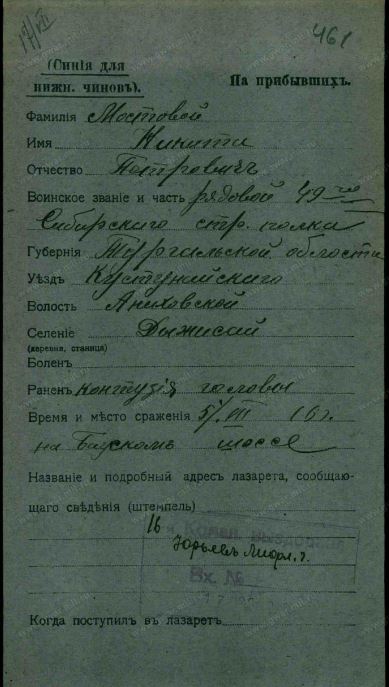 17/VII
461
(Синія для
нижн. чиновъ).
На прибывшихъ.
Фамилія Мостовой
Имя Никита
Отчество Петровичъ
Воинское званіе и часть рядовой 49го
Сибирскаго стр. полка
Губернія Тургайской области
Уѣздъ Кустанайскаго
Волость Аниховской
Селеніе Джисай
(деревня, станица)
Боленъ
Раненъ контузія головы
Время и мѣсто сраженія 5/VII 16 г.
на Баускомъ шоссе
Названіе и подробный адресъ лазарета, сообщаю-
щаго свѣдѣнія (штемпель)
16
Юрьевъ Лифл. г.
Вх. №
Когда поступилъ въ лазаретъ